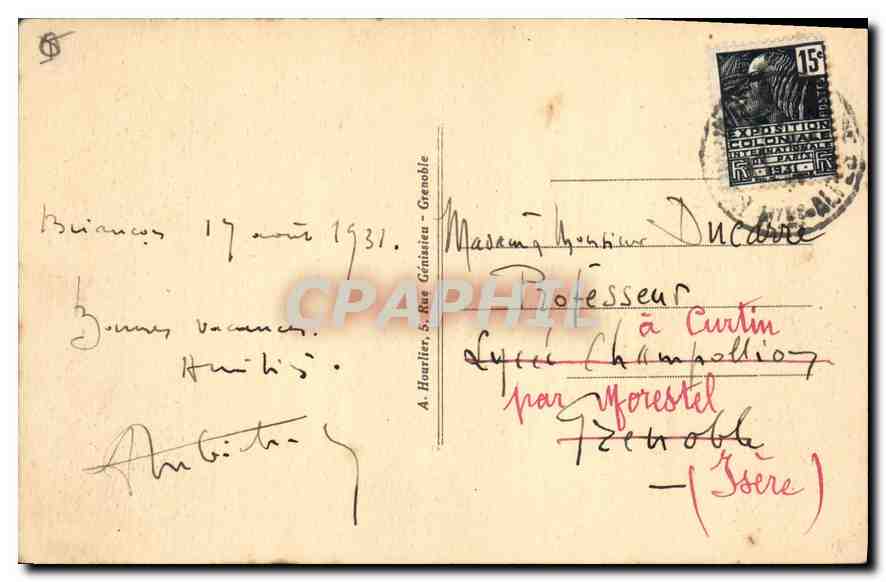 Briançon 17 août 1931.
Bonnes vacances.
Amitiés.
A. Hourlier, 5, Rue Génissieu - Grenoble
15c
POSTES
EXPOSITION
COLONIALE
INTERNATIONALE
DE PARIS
1931
Madame Monsieur Ducarre
Professeur
à Curtin
Lycée Champollion
par Morestel
Grenoble
(Isère)
CPAPHIL